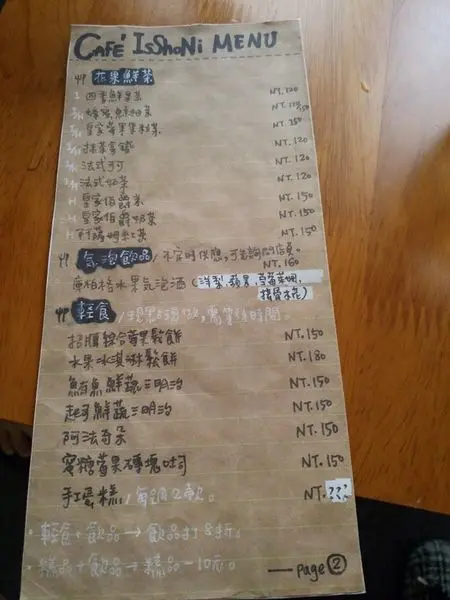 CAFÉ ISShoNi MENU
花果鮮茶
四季鮮果茶 NT.120
蜂蜜鮮柚茶 NT.
皇家莓果葉粒茶 NT.150
抹茶拿鐵 NT.120
法式可可 NT.120
法式奶茶 NT.120
H 皇家伯爵茶 NT.150
H 皇家伯爵奶茶 NT.150
H 阿薩姆紅茶 NT.150
氣泡飲品 / 不定時供應,可先詢問店員。
NT.160
席柏格水果氣泡酒 (洋梨.蘋果.草莓萊姆.
接骨木花)
輕食 / 現點現做,需等候時間。
招牌綜合莓果鬆餅 NT.150
水果冰淇淋鬆餅 NT.180
鮪魚鮮蔬三明治 NT.150
起司鮮蔬三明治 NT.150
阿法奇朵 NT.150
蜜糖莓果磚塊吐司 NT.150
手工蛋糕 / 每週2款。 NT.???
· 輕食+飲品→飲品打8折。
· 糕品+飲品→糕品-10元。
—page ②